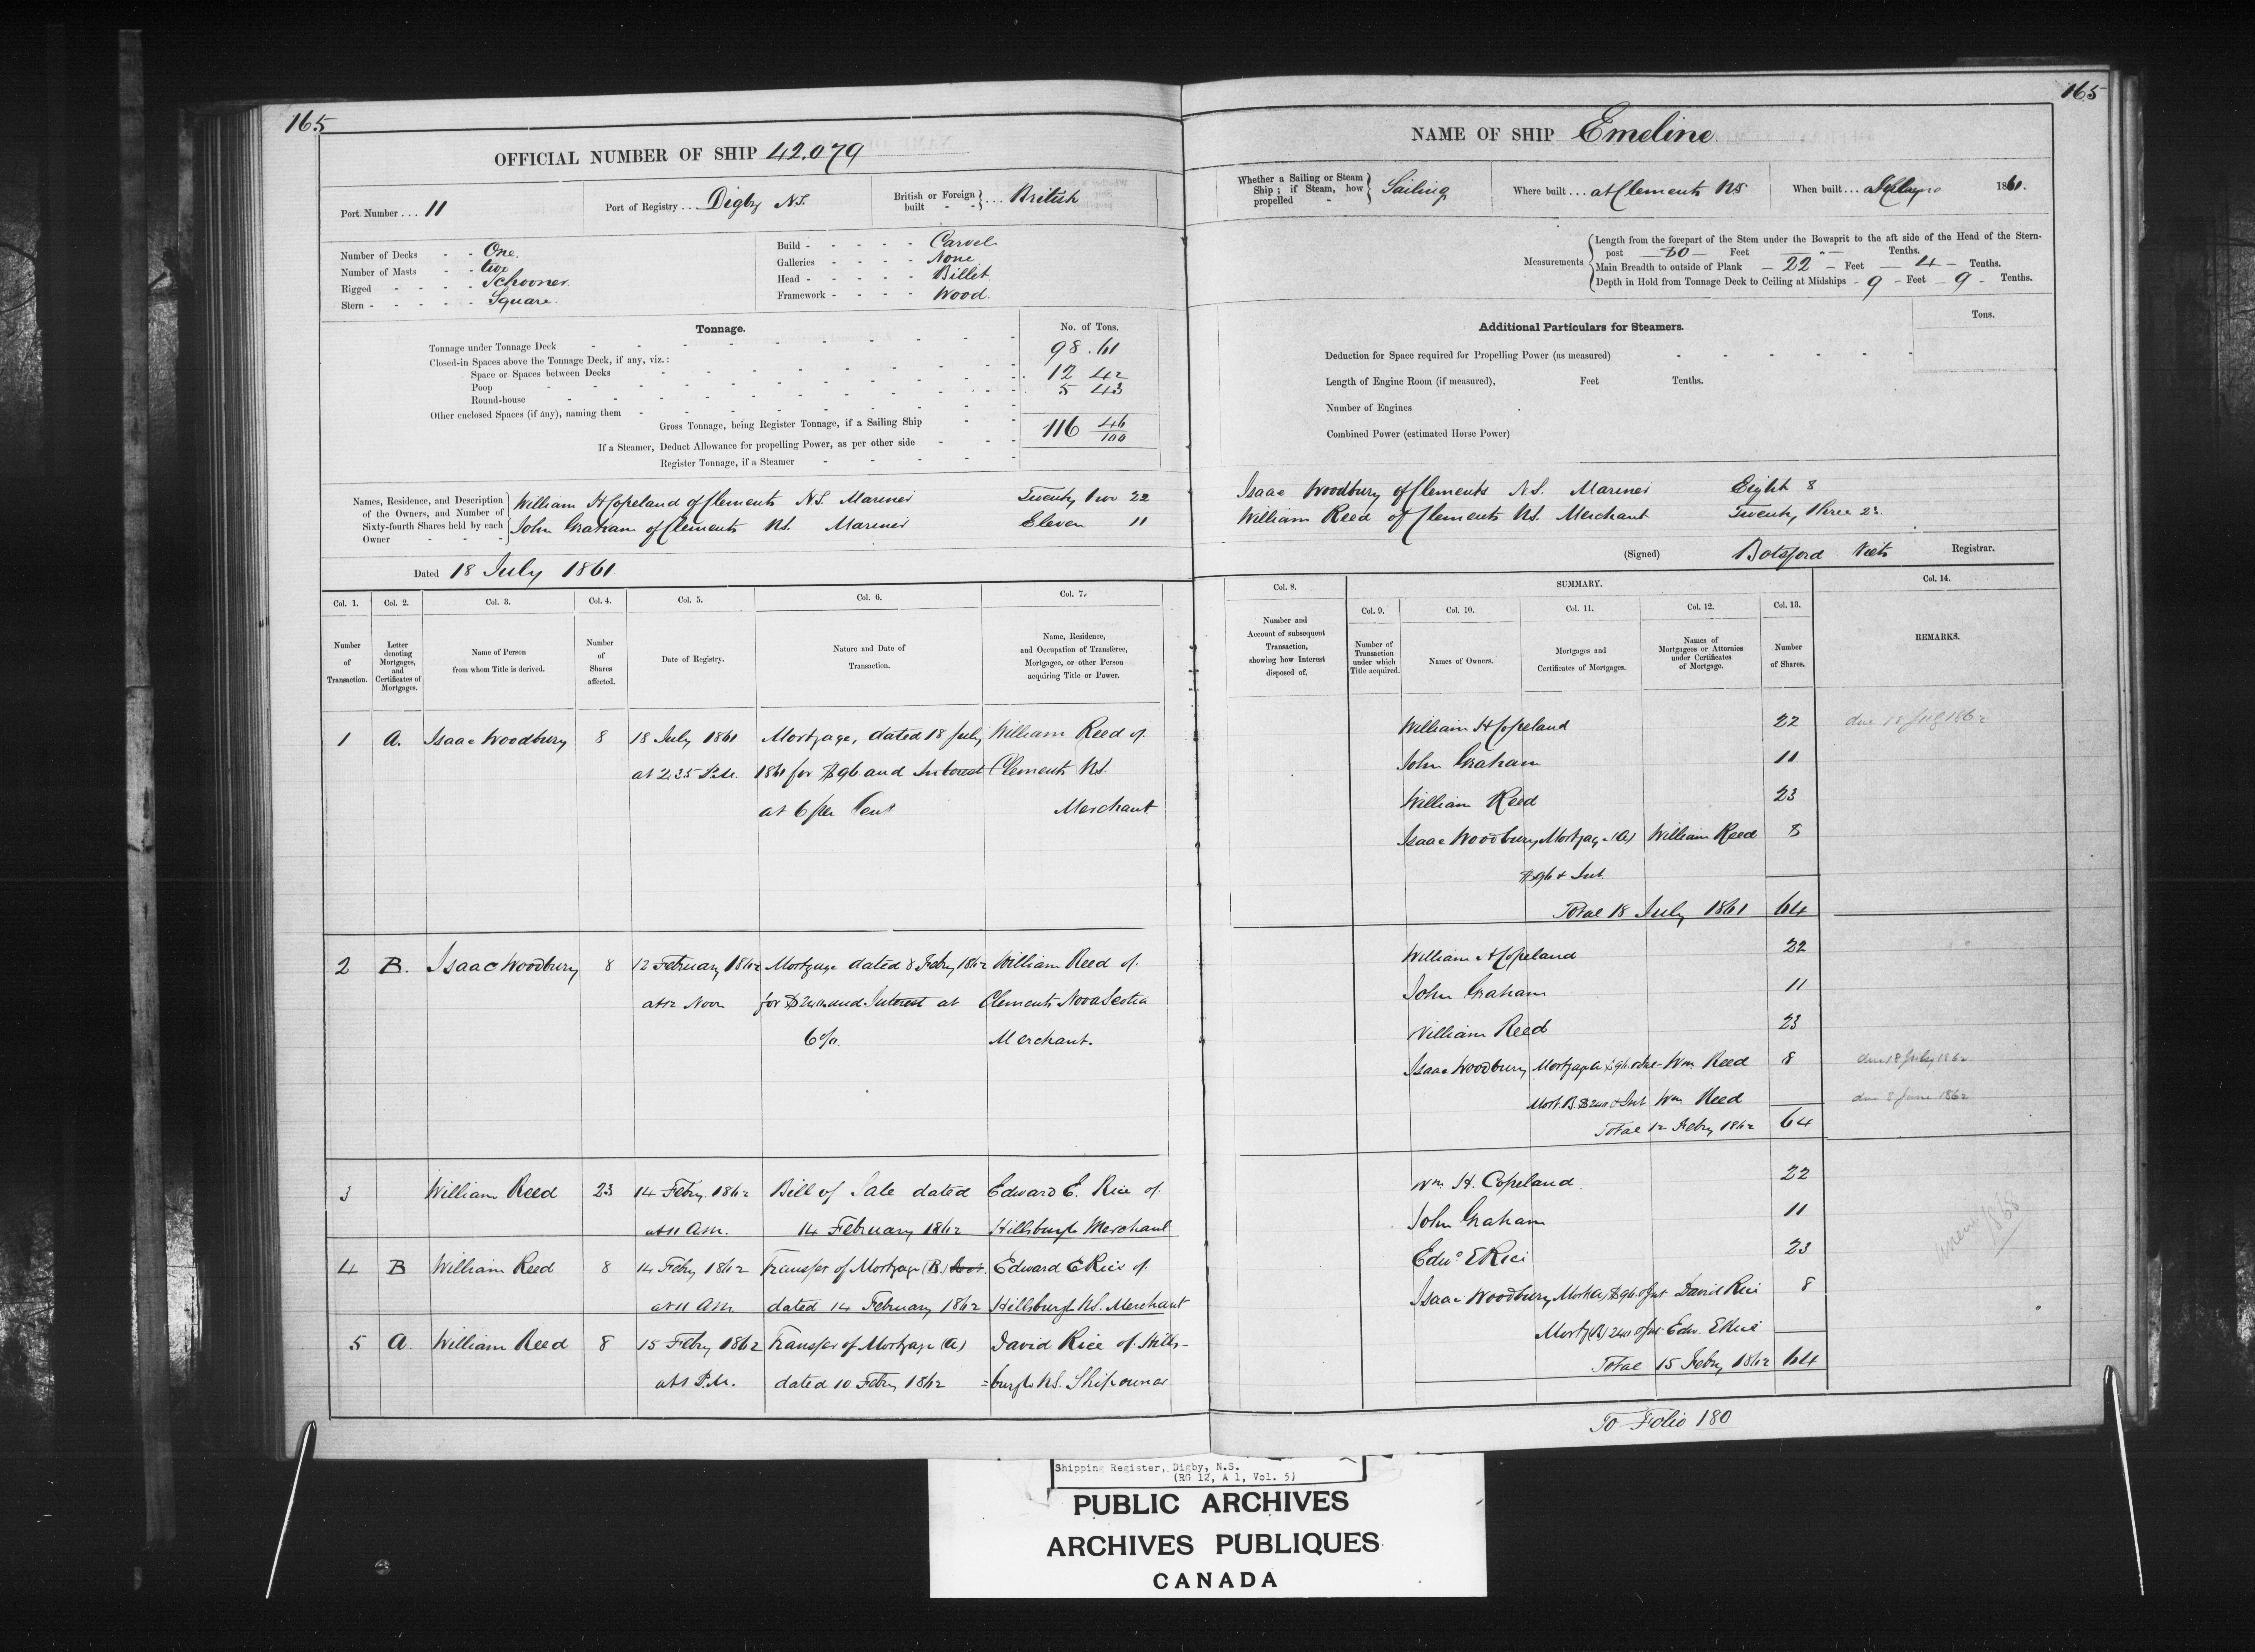 165
OFFICIAL NUMBER OF SHIP 42.079
Port Number ... 11
Port of Registry ... Digby N.S.
British or Foreign built - - } ... British
Number of Decks - - One.
Number of Masts - - two
Rigged - - - - Schooner
Stern - - - - - Square.
Build - - - - - Carvel
Galleries - - - - None
Head - - - - - Billet
Framework - - - - Wood.
Tonnage.
No. of Tons.
Tonnage under Tonnage Deck 98.61
Closed-in Spaces above the Tonnage Deck, if any, viz.:
Space or Spaces between Decks 12 42
Poop 5 43
Round-house
Other enclosed Spaces (if any), naming them
Gross Tonnage, being Register Tonnage, if a Sailing Ship 116 46/100
If a Steamer, Deduct Allowance for propelling Power, as per other side
Register Tonnage, if a Steamer
Names, Residence, and Description of the Owners, and Number of Sixty-fourth Shares held by each Owner
William H Copeland of Clements N.S. Mariner Twenty two 22
John Graham of Clements N.S. Mariner Eleven 11
Dated 18 July 1861
Col. 1. Col. 2. Col. 3. Col. 4. Col. 5. Col. 6. Col. 7.
Number of Transaction.
Letter denoting Mortgages, and Certificates of Mortgages.
Name of Person from whom Title is derived.
Number of Shares affected.
Date of Registry.
Nature and Date of Transaction.
Name, Residence, and Occupation of Transferee, Mortgagee, or other Person acquiring Title or Power.
1 A. Isaac Woodbury 8 18 July 1861 Mortgage, dated 18 July William Reed of
at 2.35 P.M. 1861 for $96 and Interest Clements N.S.
at 6 per Cent Merchant
2 B. Isaac Woodbury 8 12 February 1862 Mortgage dated 8 Feby 1862 William Reed of
at 12 Noon for and Interest at Clements Nova Scotia
6%. Merchant.
3 William Reed 23 14 Feby. 1862 Bill of Sale dated Edward E. Rice of
at 11 A.M. 14 February 1862 Hillsburgh Merchant
4 B William Reed 8 14 Feby 1862 Transfer of Mortgage (B) Edward E Rice of
at 11 A.M. dated 14 February 1862 Hillsburgh N.S. Merchant
5 A. William Reed 8 15 Feby 1862 Transfer of Mortgage (A) David Rice of Hills-
at 1 P.M. dated 10 Feby 1862 =burgh N.S. Shipowner
165
NAME OF SHIP Emeline
Whether a Sailing or Steam Ship; if Steam, how propelled - } Sailing
Where built ... at Clements N.S
When built ... 1861.
Measurements
Length from the forepart of the Stem under the Bowsprit to the aft side of the Head of the Stern-
post 80 Feet Tenths.
Main Breadth to outside of Plank - 22 - Feet 4 - Tenths.
Depth in Hold from Tonnage Deck to Ceiling at Midships - 9 - Feet 9 - Tenths.
Additional Particulars for Steamers.
Tons.
Deduction for Space required for Propelling Power (as measured)
Length of Engine Room (if measured), Feet Tenths.
Number of Engines
Combined Power (estimated Horse Power)
Isaac Woodbury of Clements N.S. Mariner Eight 8
William Reed of Clements N.S. Merchant Twenty three 23
(Signed) Botsford Viets Registrar.
Col. 8. SUMMARY. Col. 14.
Col. 9. Col. 10. Col. 11. Col. 12. Col. 13.
Number and Account of subsequent Transaction, showing how Interest disposed of.
Number of Transaction under which Title acquired.
Names of Owners.
Mortgages and Certificates of Mortgages.
Names of Mortgagees or Attornies under Certificates of Mortgage.
Number of Shares.
REMARKS.
William H Copeland 22 due 18 July 1862
John Graham 11
William Reed 23
Isaac Woodbury Mortgage (A) William Reed 8
$96 & Int.
Total 18 July 1861 64
William H Copeland 22
John Graham 11
William Reed 23
Isaac Woodbury Mortgage A $96 & Int Wm Reed 8 due 18 July 1862
Mort. B. & Int Wm Reed due 8 June 1862
Total 12 Feby 1862 64
Wm. H. Copeland 22
John Graham 11
Edwd E Rice 23
Isaac Woodbury Mort (A) $96 & Int David Rice 8
Mortg (B) & Int Edw. E Rice
Total 15 Feby 1862 64
1868
To Folio 180
Shipping Register, Digby, N.S.
(RG 12, A 1, Vol. 5)
PUBLIC ARCHIVES
ARCHIVES PUBLIQUES
CANADA